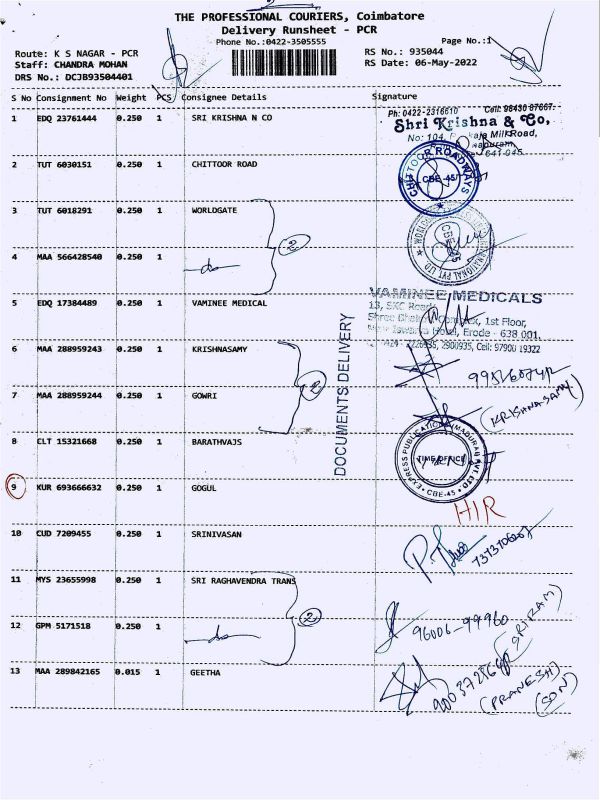 THE PROFESSIONAL COURIERS, Coimbatore
Delivery Runsheet - PCR
Phone No.:0422-3505555
Page No.:1
Route: K S NAGAR - PCR
RS No.: 935044
Staff: CHANDRA MOHAN
RS Date: 06-May-2022
DRS No.: DCJB93504401
S No Consignment No Weight PCS Consignee Details Signature
1 EDQ 23761444 0.250 1 SRI KRISHNA N CO
Ph: 0422-2316610 Cell: 98430 67667.
Shri Krishna & Co,
No: 104, Mill Road,
641 045
2 TUT 6030151 0.250 1 CHITTOOR ROAD
CHITTOOR ROADWAYS
CBE-45
3 TUT 6018291 0.250 1 WORLDGATE
2
4 MAA 566428540 0.250 1 -do-
5 EDQ 17384489 0.250 1 VAMINEE MEDICAL
VAMINEE MEDICALS
13, SKC Road,
1st Floor,
Hotel, Erode - 638 001.
2900935, Cell: 97900 19322
DOCUMENTS DELIVERY
6 MAA 288959243 0.250 1 KRISHNASAMY
2
(KRISHNASAMY)
7 MAA 288959244 0.250 1 GOWRI
8 CLT 15321668 0.250 1 BARATHVAJS
EXPRESS PUBLICATIONS (MADURAI) PVT LTD
TIME OFFICE
CBE-45
9 KUR 693666632 0.250 1 GOGUL
HIR
10 CUD 7209455 0.250 1 SRINIVASAN
11 MYS 23655998 0.250 1 SRI RAGHAVENDRA TRANS
2
12 GPM 5171518 0.250 1 -do-
96006-99960
(SRIRAM)
13 MAA 289842165 0.015 1 GEETHA
(PRANESH)
(SON)